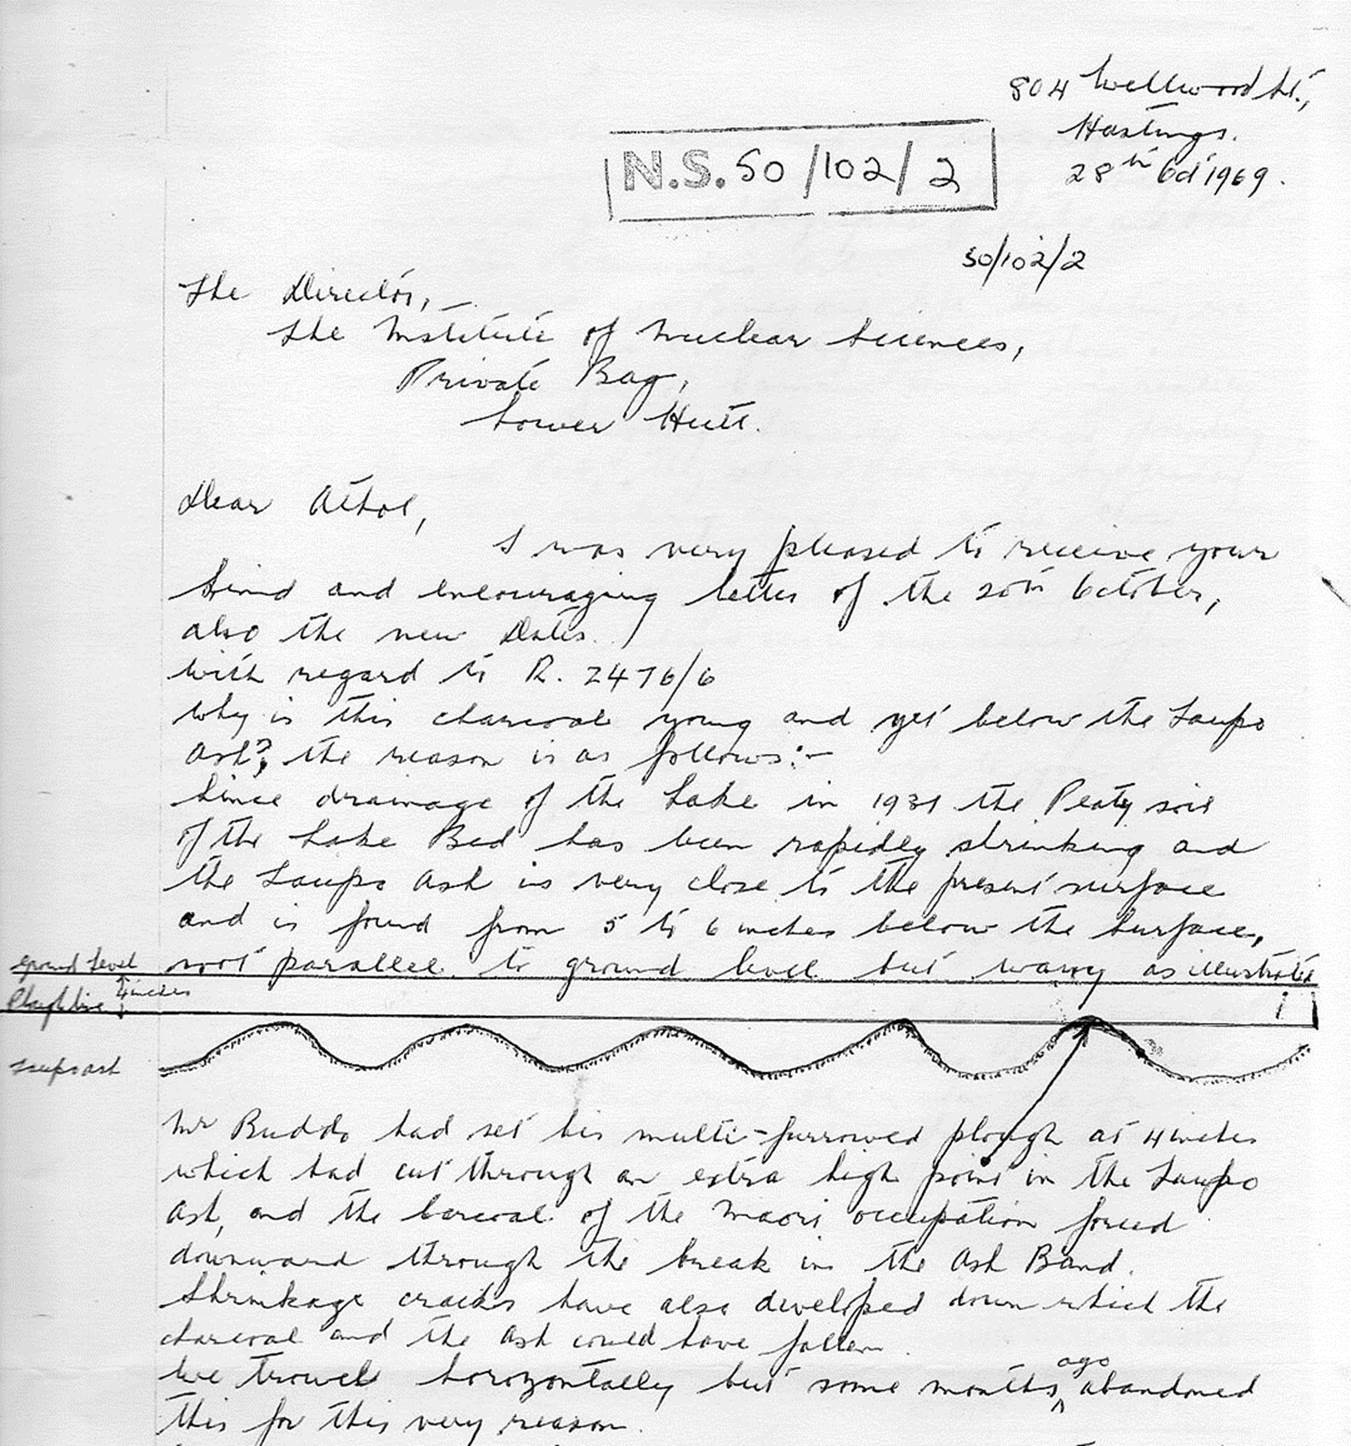 804 Wellwood St.,
Hastings.
28th Oct 1969.
N.S. 50/102/2
50/102/2
The Director, –
The Institute of Nuclear Sciences,
Private Bag,
Lower Hutt.
Dear Athol,
I was very pleased to receive your
kind and encouraging letter of the 20th October,
also the new Dates.
With regard to R. 2476/6
Why is this charcoal young and yet below the Taupo
Ash?, the reason is as follows:-
Since drainage of the Lake in 1931 the Peaty soil
of the Lake Bed has been rapidly shrinking and
the Taupo Ash is very close to the present surface
and is found from 5 to 6 inches below the surface,
not parallel to ground level but wavy as illustrated
ground level
Plough line 4 inches
Taupo ash
Mr Buddo had set his multi-furrowed plough at 4 inches
which had cut through an extra high point in the Taupo
Ash, and the charcoal of the Maori occupation forced
downward through the break in the Ash Band.
Shrinkage cracks have also developed down which the
charcoal and the Ash could have fallen.
We trowel horozontally but some months ago abandoned
this for this very reason.